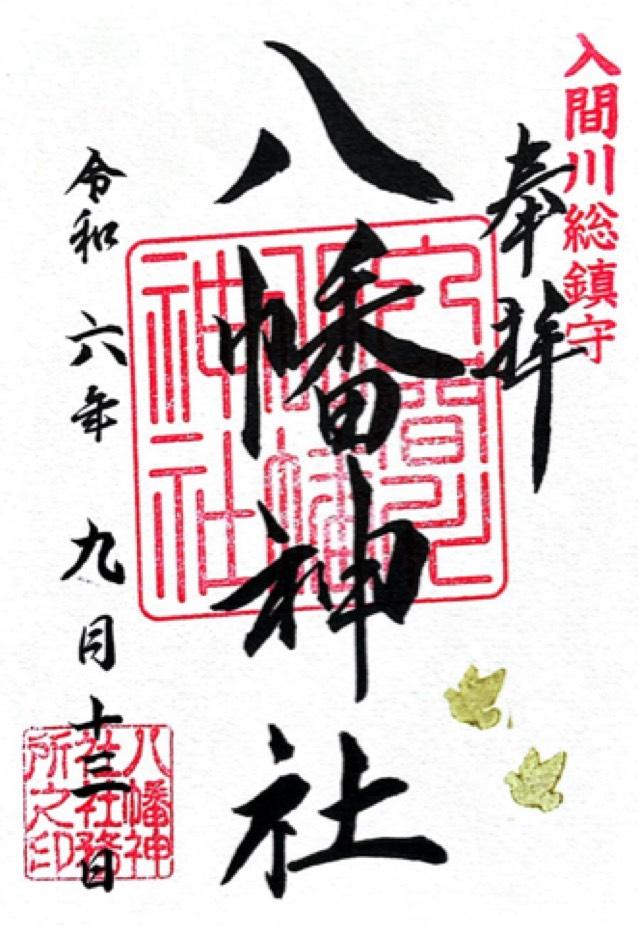 入間川総鎮守
奉拝
八幡神社
令和六年九月十三日
入間川
八幡
神社
八幡神
社社務
所之印